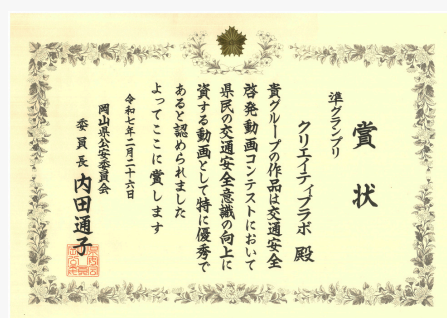 賞状
準グランプリ
クリエイティブラボ 殿
貴グループの作品は交通安全
啓発動画コンテストにおいて
県民の交通安全意識の向上に
資する動画として特に優秀で
あると認められました
よってここに賞します
令和七年二月二十六日
岡山県公安委員会
委員長 内田通子